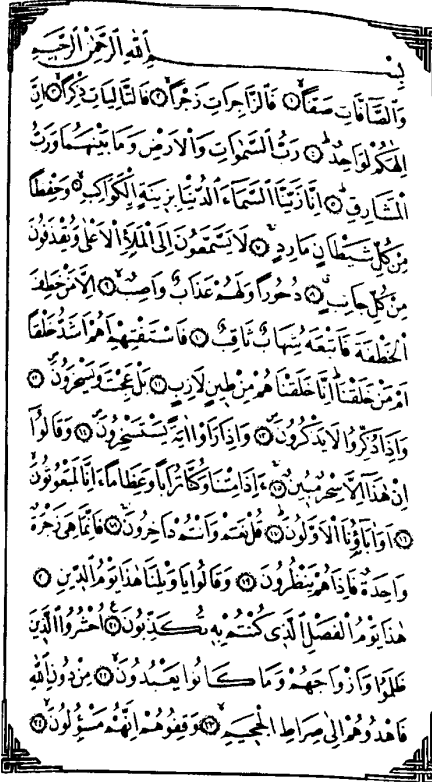 بِسْمِ اللّٰهِ الرَّحْمٰنِ الرَّحِيمِ
وَالصَّافَّاتِ صَفًّاۙ ﴿١﴾ فَالزَّاجِرَاتِ زَجْرًاۙ ﴿٢﴾ فَالتَّالِيَاتِ ذِكْرًاۙ ﴿٣﴾ اِنَّ
اِلٰهَكُمْ لَوَاحِدٌۜ ﴿٤﴾ رَبُّ السَّمٰوَاتِ وَالْاَرْضِ وَمَا بَيْنَهُمَا وَرَبُّ
الْمَشَارِقِۜ ﴿٥﴾ اِنَّا زَيَّنَّا السَّمَاءَ الدُّنْيَا بِزِينَةٍۨ الْكَوَاكِبِۙ ﴿٦﴾ وَحِفْظًا
مِنْ كُلِّ شَيْطَانٍ مَارِدٍۚ ﴿٧﴾ لَا يَسَّمَّعُونَ اِلَى الْمَلَاِ الْاَعْلٰى وَيُقْذَفُونَ
مِنْ كُلِّ جَانِبٍۗ ﴿٨﴾ دُحُورًا وَلَهُمْ عَذَابٌ وَاصِبٌۙ ﴿٩﴾ اِلَّا مَنْ خَطِفَ
الْخَطْفَةَ فَاَتْبَعَهُ شِهَابٌ ثَاقِبٌ ﴿١٠﴾ فَاسْتَفْتِهِمْ اَهُمْ اَشَدُّ خَلْقًا
اَمْ مَنْ خَلَقْنَاۜ اِنَّا خَلَقْنَاهُمْ مِنْ طِينٍ لَازِبٍ ﴿١١﴾ بَلْ عَجِبْتَ وَيَسْخَرُونَۖ ﴿١٢﴾
وَاِذَا ذُكِّرُوا لَا يَذْكُرُونَۖ ﴿١٣﴾ وَاِذَا رَاَوْا اٰيَةً يَسْتَسْخِرُونَۖ ﴿١٤﴾ وَقَالُوا
اِنْ هٰذَا اِلَّا سِحْرٌ مُبِينٌۚ ﴿١٥﴾ ءَاِذَا مِتْنَا وَكُنَّا تُرَابًا وَعِظَامًا ءَاِنَّا لَمَبْعُوثُونَۙ
﴿١٦﴾ اَوَاٰبَاؤُنَا الْاَوَّلُونَۜ ﴿١٧﴾ قُلْ نَعَمْ وَاَنْتُمْ دَاخِرُونَۚ ﴿١٨﴾ فَاِنَّمَا هِيَ زَجْرَةٌ
وَاحِدَةٌ فَاِذَا هُمْ يَنْظُرُونَ ﴿١٩﴾ وَقَالُوا يَا وَيْلَنَا هٰذَا يَوْمُ الدِّينِ ﴿٢٠﴾
هٰذَا يَوْمُ الْفَصْلِ الَّذِي كُنْتُمْ بِهِ تُكَذِّبُونَ۟ ﴿٢١﴾ اُحْشُرُوا الَّذِينَ
ظَلَمُوا وَاَزْوَاجَهُمْ وَمَا كَانُوا يَعْبُدُونَۙ ﴿٢٢﴾ مِنْ دُونِ اللّٰهِ
فَاهْدُوهُمْ اِلٰى صِرَاطِ الْجَحِيمِ ﴿٢٣﴾ وَقِفُوهُمْ اِنَّهُمْ مَسْؤُلُونَۙ ﴿٢٤﴾